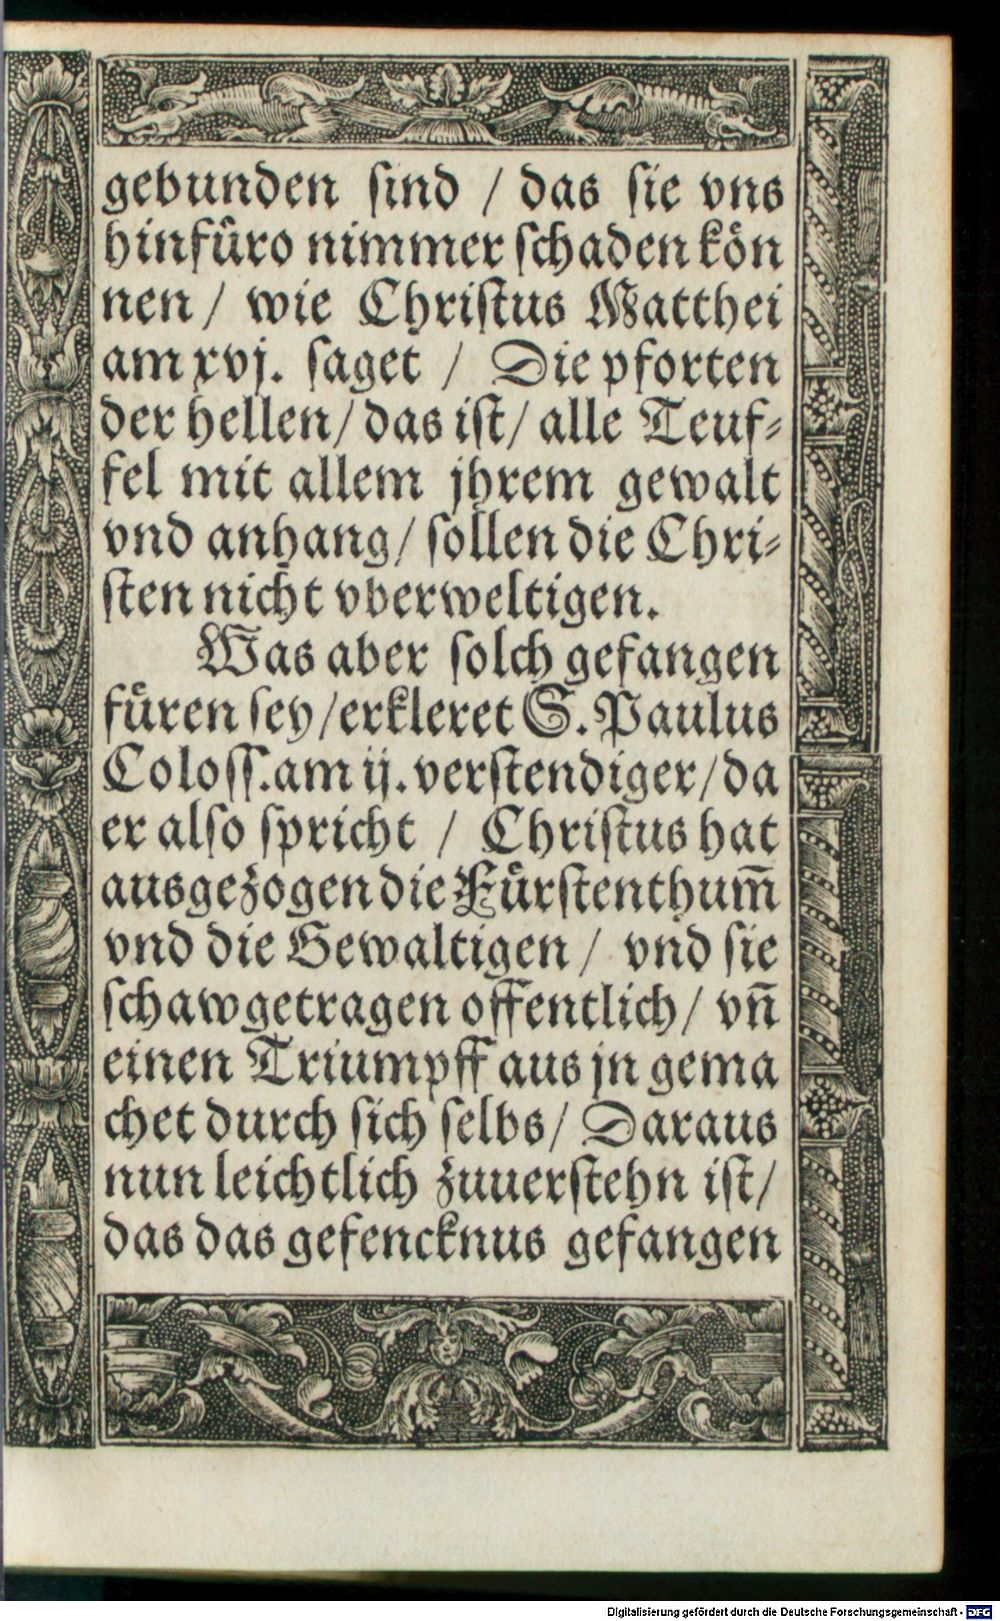 gebunden sind / das sie vns
hinfüro nimmer schaden kön
nen / wie Christus Matthei
am xvj. saget / Die pforten
der hellen / das ist / alle Teuf-
fel mit allem jhrem gewalt
vnd anhang / sollen die Chri-
sten nicht vberweltigen.
Was aber solch gefangen
füren sey / erkleret S. Paulus
Coloss. am ij. verstendiger / da
er also spricht / Christus hat
ausgezogen die Fürstenthum̄
vnd die Gewaltigen / vnd sie
schawgetragen offentlich / vn̄
einen Triumpff aus jn gema
chet durch sich selbs / Daraus
nun leichtlich zuuerstehn ist /
das das gefencknus gefangen
Digitalisierung gefördert durch die Deutsche Forschungsgemeinschaft - DFG